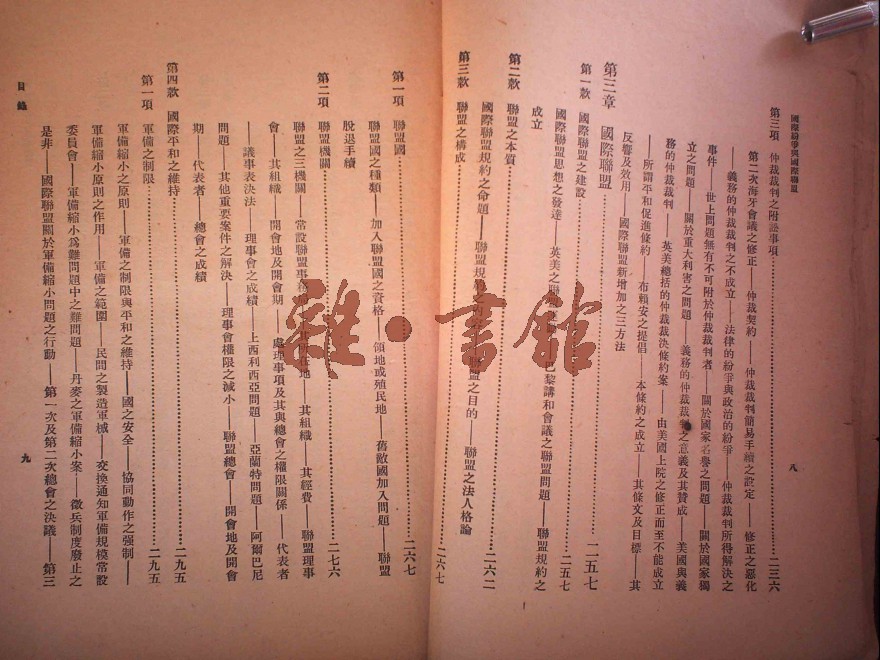 國際紛爭與國際聯盟
八
第三項 仲裁裁判之附訟事項 二三六
第二次海牙會議之修正——仲裁契約——仲裁裁判簡易手續之設定——修正之惡化
——義務的仲裁裁判之不成立——法律的紛爭與政治的紛爭——仲裁裁判所得解決之
事件——世上問題無有不可附於仲裁裁判者——關於國家名譽之問題——關於國家獨
立之問題——關於重大利害之問題——義務的仲裁裁判之意義及其贊成——美國與義
務的仲裁裁判——英美總括的仲裁裁決條約案——由美國上院之修正而至不能成立
——所謂平和促進條約——布賴安之提倡——本條約之成立——其條文及目標——其
反響及效用——國際聯盟新增加之三方法
第三章 國際聯盟 二五七
第一款 國際聯盟之建設 二五七
國際聯盟思想之發達——英美之聯盟——巴黎講和會議之聯盟問題——聯盟規約之
成立
第二款 聯盟之本質 二六二
國際聯盟規約之命題——聯盟規約之——聯盟之目的——聯盟之法人格論
第三款 聯盟之構成 二六七
第一項 聯盟國 二六七
聯盟國之種類——加入聯盟國之資格——領地或殖民地——舊敵國加入問題——聯盟
脫退手續
第二項 聯盟機關 二七六
聯盟之三機關——常設聯盟事——其所在地——其組織——其經費——聯盟理事
會——其組織——開會地及開會期——處理事項及其與總會之權限關係——代表者
——議事表決法——理事會之成績——上西利西亞問題——亞蘭特問題——阿爾巴尼
問題——其他重要案件之解決——理事會權限之減小——聯盟總會——開會地及開會
期——代表者——總會之成績
第四款 國際平和之維持 二九五
第一項 軍備之制限 二九五
軍備縮小之原則——軍備之制限與平和之維持——國之安全——協同動作之强制——
軍備縮小原則之作用——軍備之範圍——民間之製造軍械——交換通知軍備規模常設
委員會——軍備縮小爲難問題中之難問題——丹麥之軍備縮小案——徵兵制度廢止之
是非——國際聯盟關於軍備縮小問題之行動——第一次及第二次總會之決議——第三
目錄
九
雅·書館